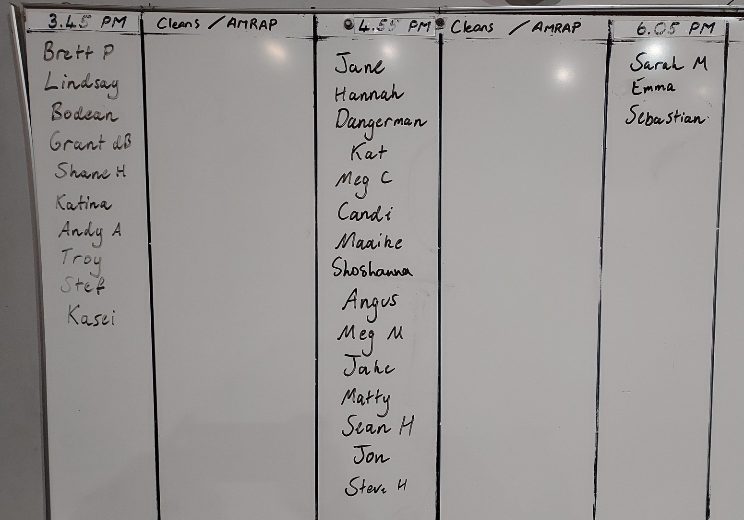 3.45 PM
Cleans / AMRAP
4.55 PM
Cleans / AMRAP
6.05 PM
Brett P
Lindsay
Bodean
Grant dB
Shane H
Katina
Andy A
Troy
Stef
Kasei
Jane
Hannah
Dangerman
Kat
Meg C
Candi
Maaike
Shoshanna
Angus
Meg M
Jake
Matty
Sean H
Jon
Steve H
Sarah M
Emma
Sebastian